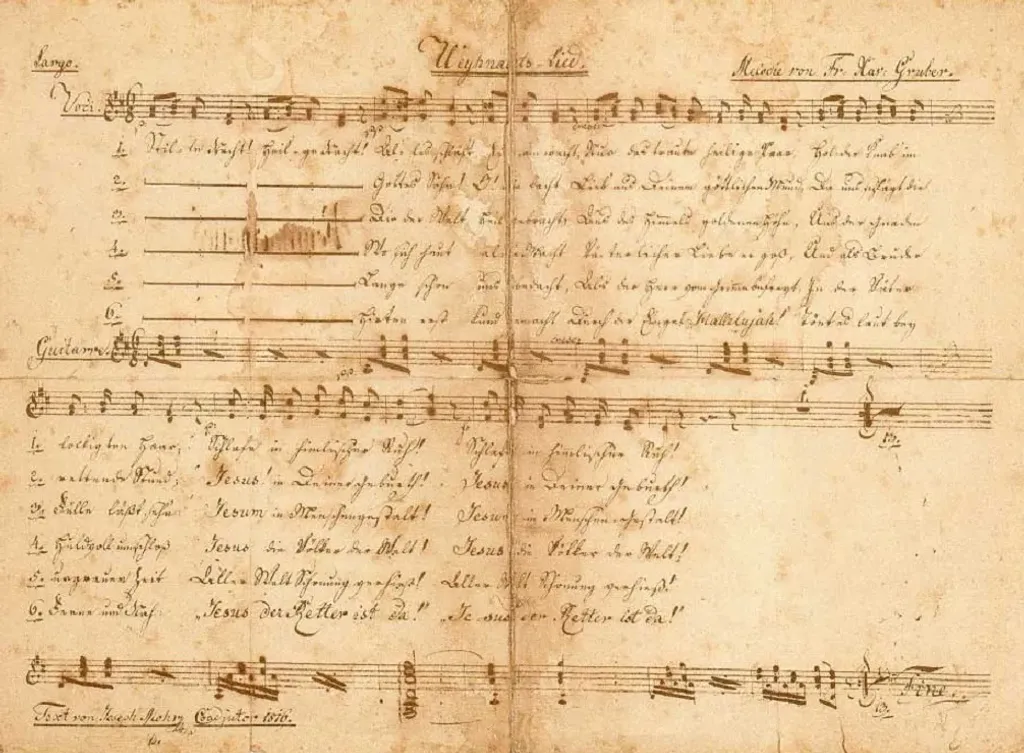 Largo. Weyhnachts-Lied. Melodie von Fr. Xav. Gruber.
Voci.
1. Stille Nacht! Heilige Nacht! Alles schläft einsam wacht, Nur das traute heilige Paar. Holder Knab im
2. Gottes Sohn! O! wie lacht Lieb aus Deinem göttlichen Mund, Da uns schlägt die
3. Die der Welt Heil gebracht, Aus des Himmels goldenen Höhn, Aus der Gnaden
4. Wo sich heut alle Macht Väterlicher Liebe ergoß, Und als Bruder
5. Lange schon uns bedacht, Als der Herr vom Grimme befreyt, In der Väter
6. Hirten erst kund gemacht Durch der Engel Hallelujah! Tönt es laut bey
Guitarre. cresc
1. lockigten Haar, Schlafe in himlischer Ruh! Schlafe in himlischer Ruh!
2. rettende Stund, Jesus! in Deiner Geburth! Jesus in Deiner Geburth!
3. Fülle läßt sehn Jesum in Menschengestalt! Jesum in Menschengestalt!
4. Huldvoll umschloß Jesus die Völker der Welt! Jesus die Völker der Welt!
5. urgrauer Zeit Aller Welt Schonung verhieß! Aller Welt Schonung verhieß!
6. Ferne und Nah: "Jesus der Retter ist da!" "Jesus der Retter ist da!
Fine.
Text von Joseph Mohr Coadjutor 1816.